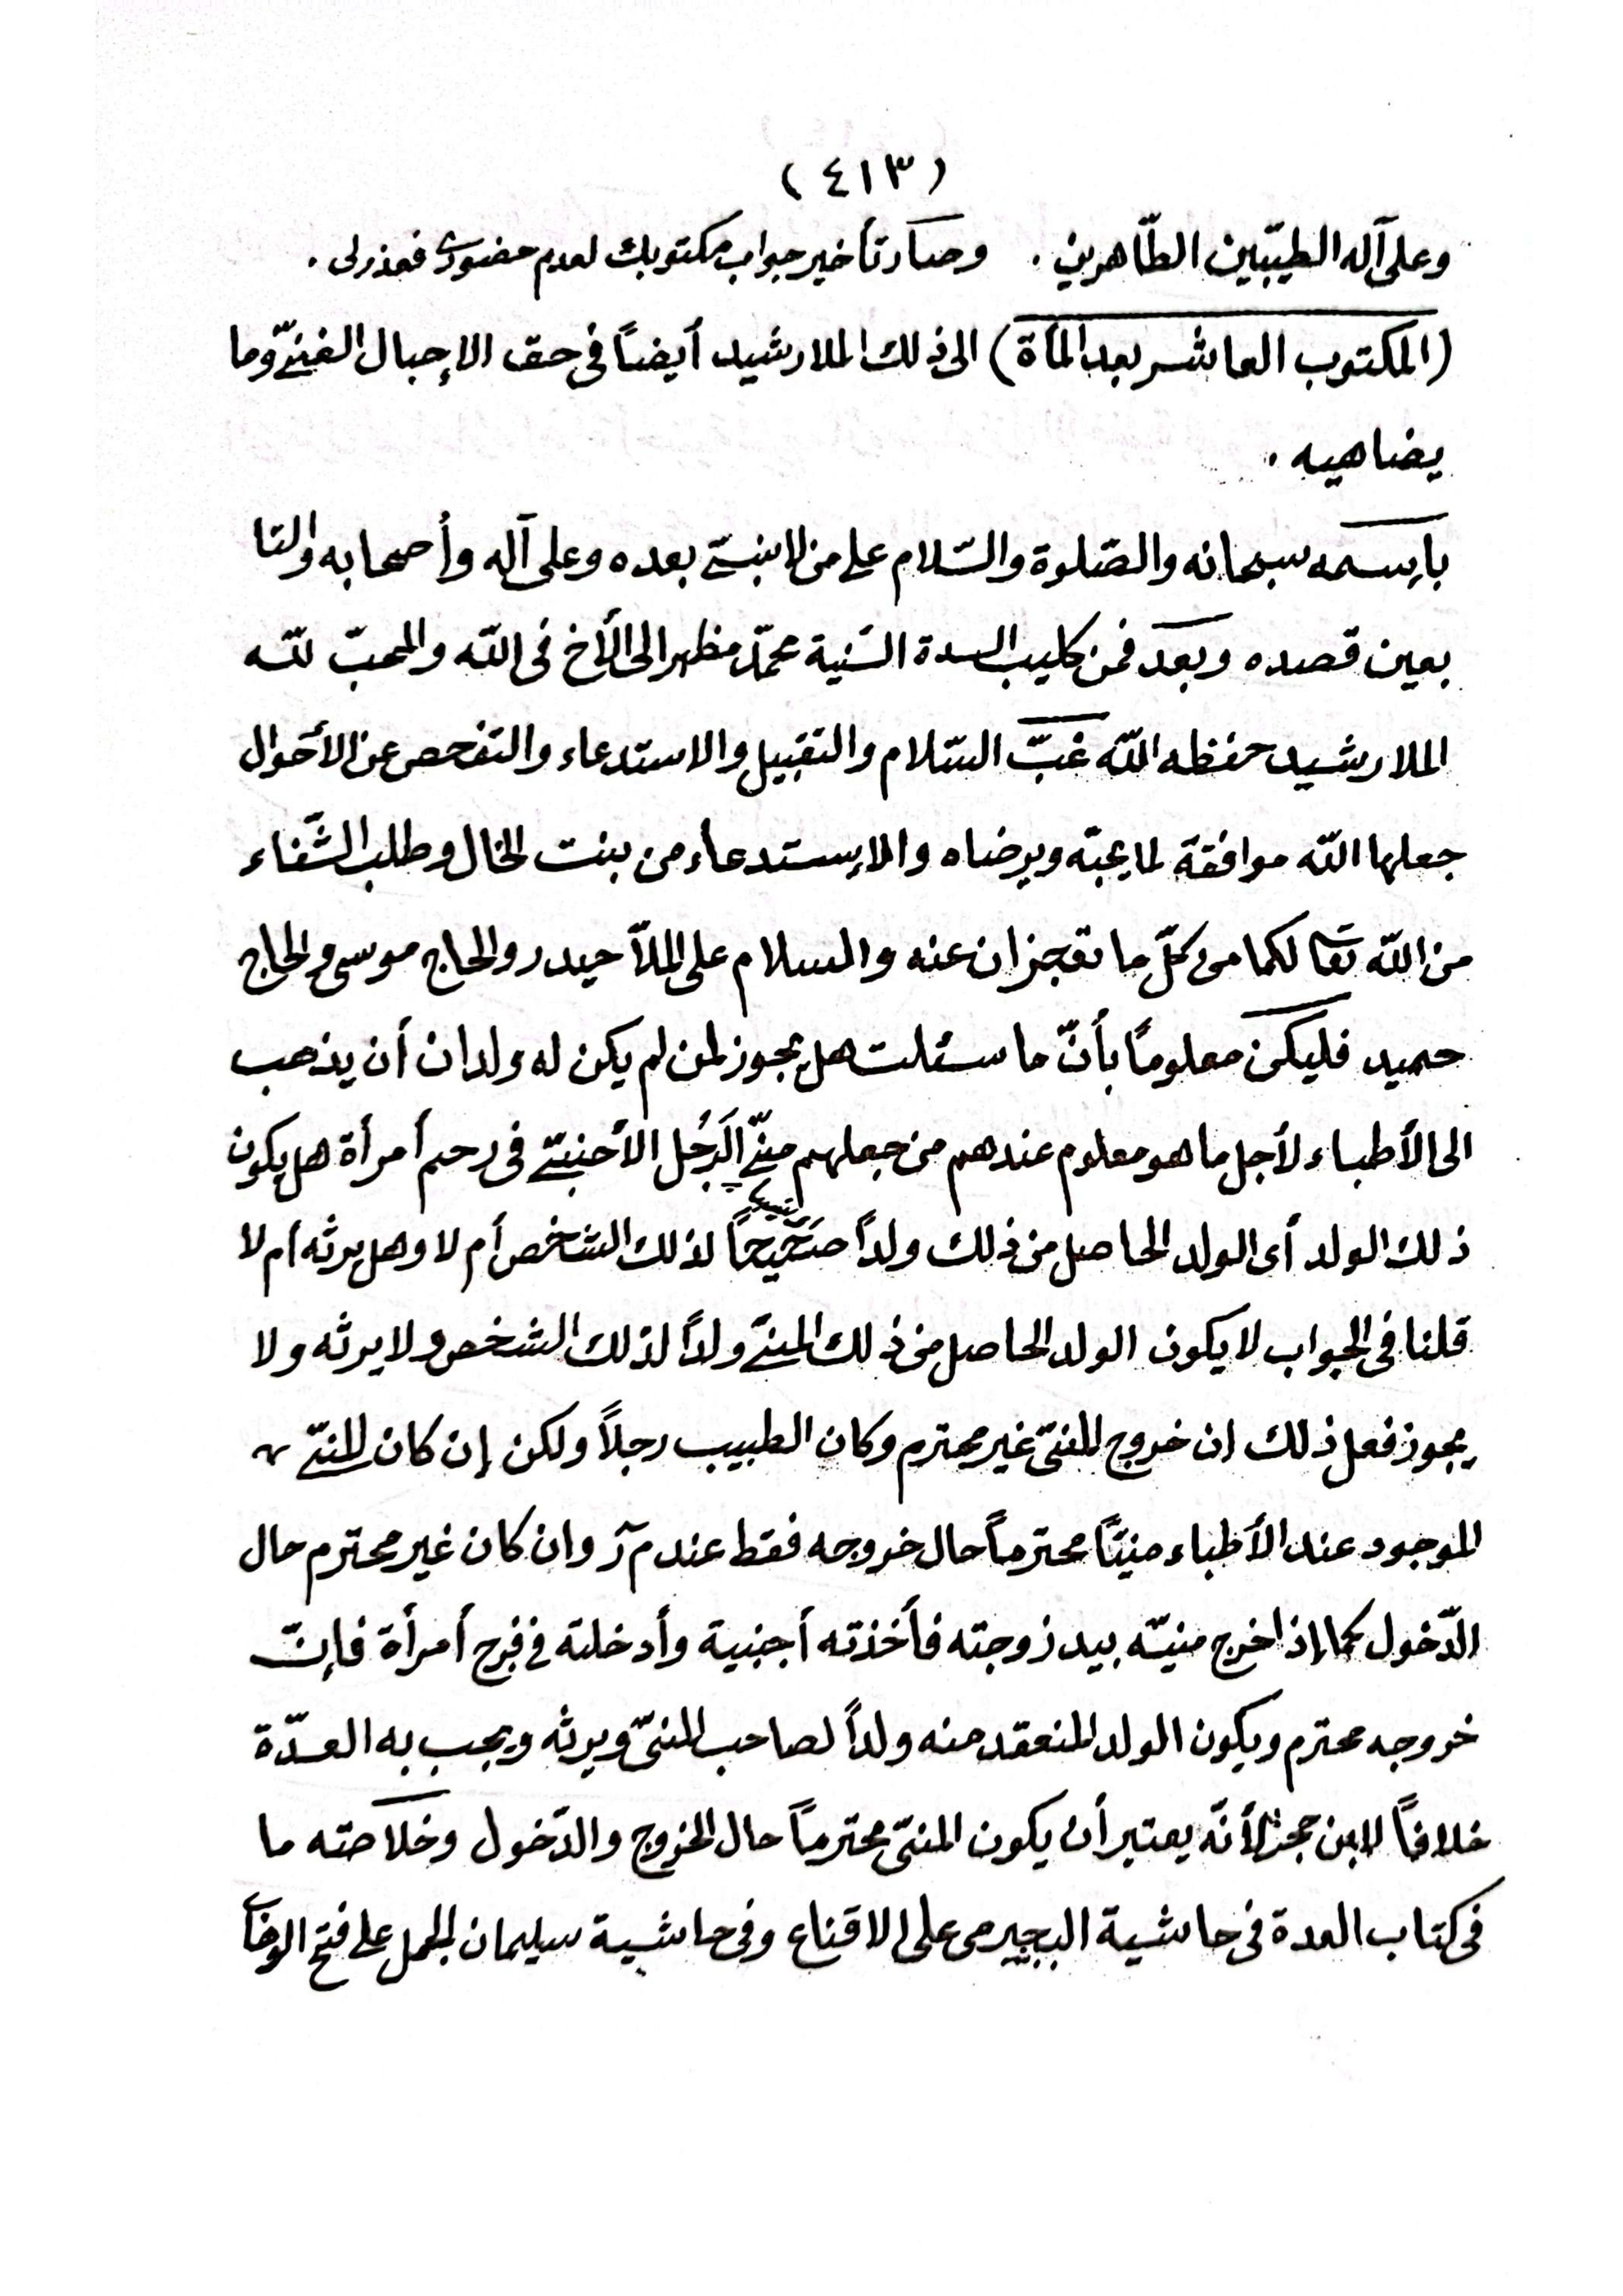 (٤١٣)
وعلى آله الطيّبين الطّاهرين . وصار تأخير جواب مكتوبك لعدم حضورى فعذرلى .
(المكتوب العاشر بعد المأة) الى ذلك الملا رشيد أيضاً فى حق الإحبال الفنىّ وما
يضاهيه .
بإسمه سبحانه والصّلوة والسّلام على من لا نبىّ بعده وعلى آله وأصحابه والتا
بعين قصده وبعد فمن كليب السدة السّنية محمّد مظهر الى الأخ فى اللّه والمحبّ للّه
الملا رشيد حفظه اللّه غبّ السّلام والتقبيل والاستدعاء والتفحص عن الأحوال
جعلها اللّه موافقة لما يحبّه ويرضاه والإستدعاء من بنت الخال وطلب الشّفاء
من اللّه تعا لكما من كلّ ما تعجزان عنه والسلام على الملاّ حيدر والحاج موسى والحاج
حميد فليكن معلوماً بأنّ ما سئلت هل يجوز لمن لم يكن له ولدان أن يذهب
الى الأطباء لأجل ما هو معلوم عندهم من جعلهم منىّ الرَجُل الأجنبىّ فى رحم أمرأة هل يكون
ذلك الولد أى الولد الحاصل من ذلك ولداً صَحِيحاً لذلك الشخص أم لا وهل يرثه أم لا
قلنا فى الجواب لا يكون الولد الحاصل من ذلك المنىّ ولداً لذلك الشخص ولا يرثه ولا
يجوز فعل ذلك ان خروج المنىّ غير محترم وكان الطبيب رجلاً ولكن إن كان المنىّ
الموجود عند الأطباء منيّاً محترماً حال خروجه فقط عند م ر وان كان غير محترم حال
الدّخول كما إذا اخرج منيّه بيد زوجته فأخذته أجنبية وأدخلته فى فرج أمرأة فإنّ
خروجه محترم ويكون الولد المنعقد منه ولداً لصاحب المنىّ ويرثه ويجب به العدّة
خلافاً لابن حجر لأنّه يعتبر أن يكون المنىّ محترماً حال الخروج والدّخول وخلاصته ما
فى كتاب العدة فى حاشية البجيرمى على الاقناع وفى حاشية سليمان الجمل على فتح الوهاب